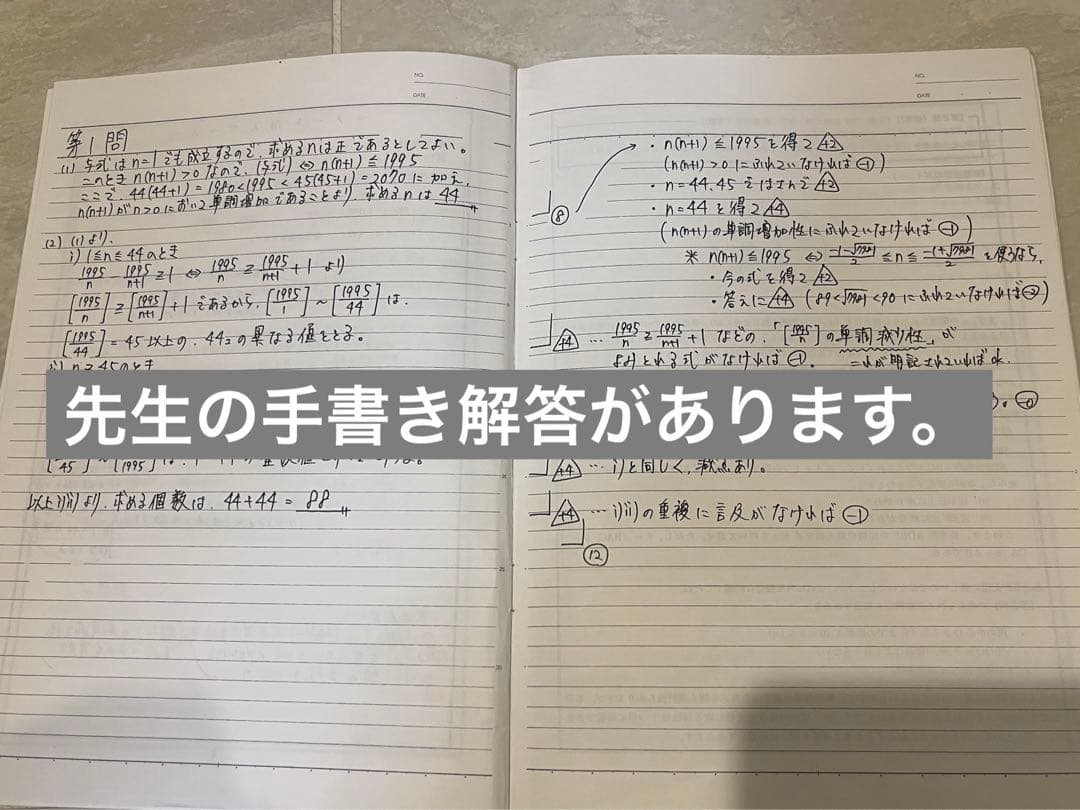 NO.
DATE
第1問
(1) 与式はn=1でも成立するので、求めるnは正であるとしてよい。
このとき n(n+1)>0 なので、(与式) ⇔ n(n+1) ≦ 1995
ここで、44(44+1)=1980<1995<45(45+1)=2070 に加え、
n(n+1)がn>0において単調増加であることより、求めるnは 44
(2) (1)より、
i) 1≦n≦44のとき
1995/n - 1995/(n+1) ≧ 1 ⇔ 1995/n ≧ 1995/(n+1) + 1 より
[1995/n] ≧ [1995/(n+1)] + 1 であるから、[1995/1] ~ [1995/44] は、
[1995/44] = 45以上の、44コの異なる値をとる。
n≧45のとき
先生の手書き解答があります。
以上i)ii)より、求める個数は、44+44=88
NO.
DATE
・n(n+1)≦1995を得て △2
(n(n+1)>0にふれていなければ -1)
・n=44,45ではさんで △2
⑧
・n=44を得て △4
(n(n+1)の単調増加性にふれていなければ -1)
を使うなら、
・今の式を得て △2
・答えに △4
△4 … 1995/n ≧ 1995/(n+1) + 1 などの、「[1995/n]の単調減少性」が
よみとれる式がなければ -1。 これが明記されていればok.
△4 … i)と同じく、減点あり。
△4 … i)ii)の重複に言及がなければ -1
⑫